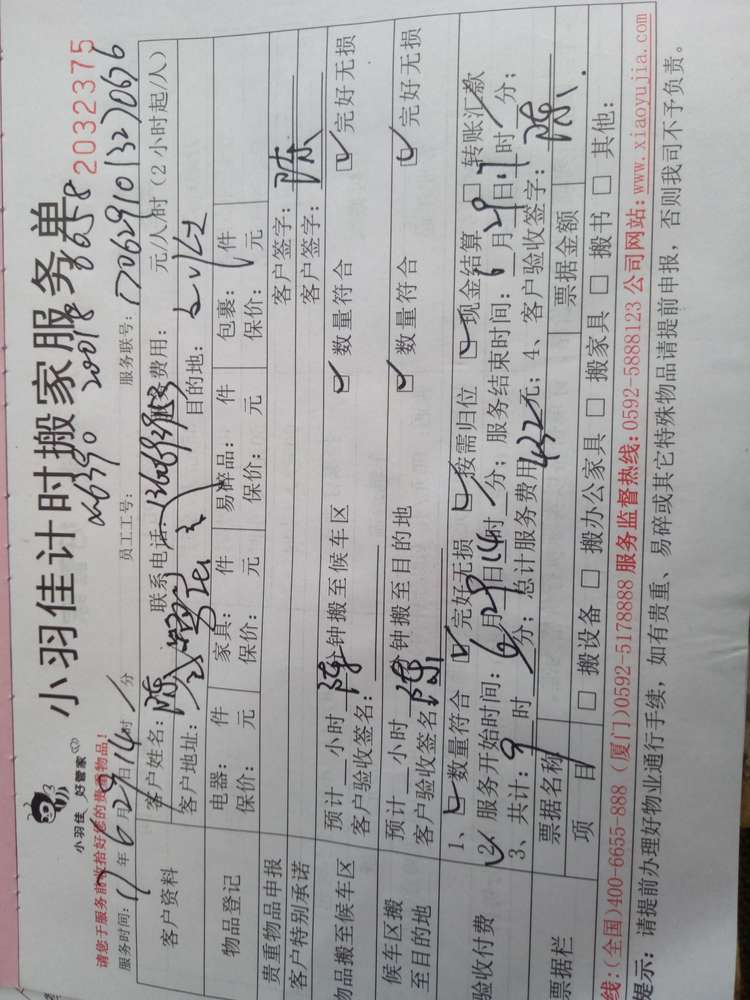 小羽佳计时搬家服务单
2032375
小羽佳 好管家
请您于服务前收拾好您的贵重物品!
服务时间: 17年6月29日14时 分 员工工号: 服务联号:
客户资料 客户姓名: 陈 联系电话: 服务费用: 元/人/时 (2小时起/人)
客户地址: 目的地:
物品登记 电器: 件 家具: 件 易碎品: 件 包裹: 件
保价: 元 保价: 元 保价: 元 保价: 元
贵重物品申报 客户签字: 陈
客户特别承诺 客户签字:
物品搬至候车区 预计 小时 分钟搬至候车区 数量符合 完好无损
客户验收签名: 陈
候车区搬至目的地 预计 小时 分钟搬至目的地 数量符合 完好无损
客户验收签名: 陈
验收付费 1、数量符合 完好无损 按需归位 现金结算 转账汇款
2、服务开始时间: 6月29日14时 分; 服务结束时间: 月29日 时 分;
3、共计: 9时 分; 总计服务费用: 432元; 4、客户验收签字: 陈
票据栏 票据名称 票据金额
项 目 搬设备 搬办公家具 搬家具 搬书 其他:
线:(全国)400-6655-888 (厦门)0592-5178888 服务监督热线:0592-5888123 公司网站:www.xiaoyujia.com
提示: 请提前办理好物业通行手续, 如有贵重、易碎或其它特殊物品请提前申报, 否则我司不予负责。